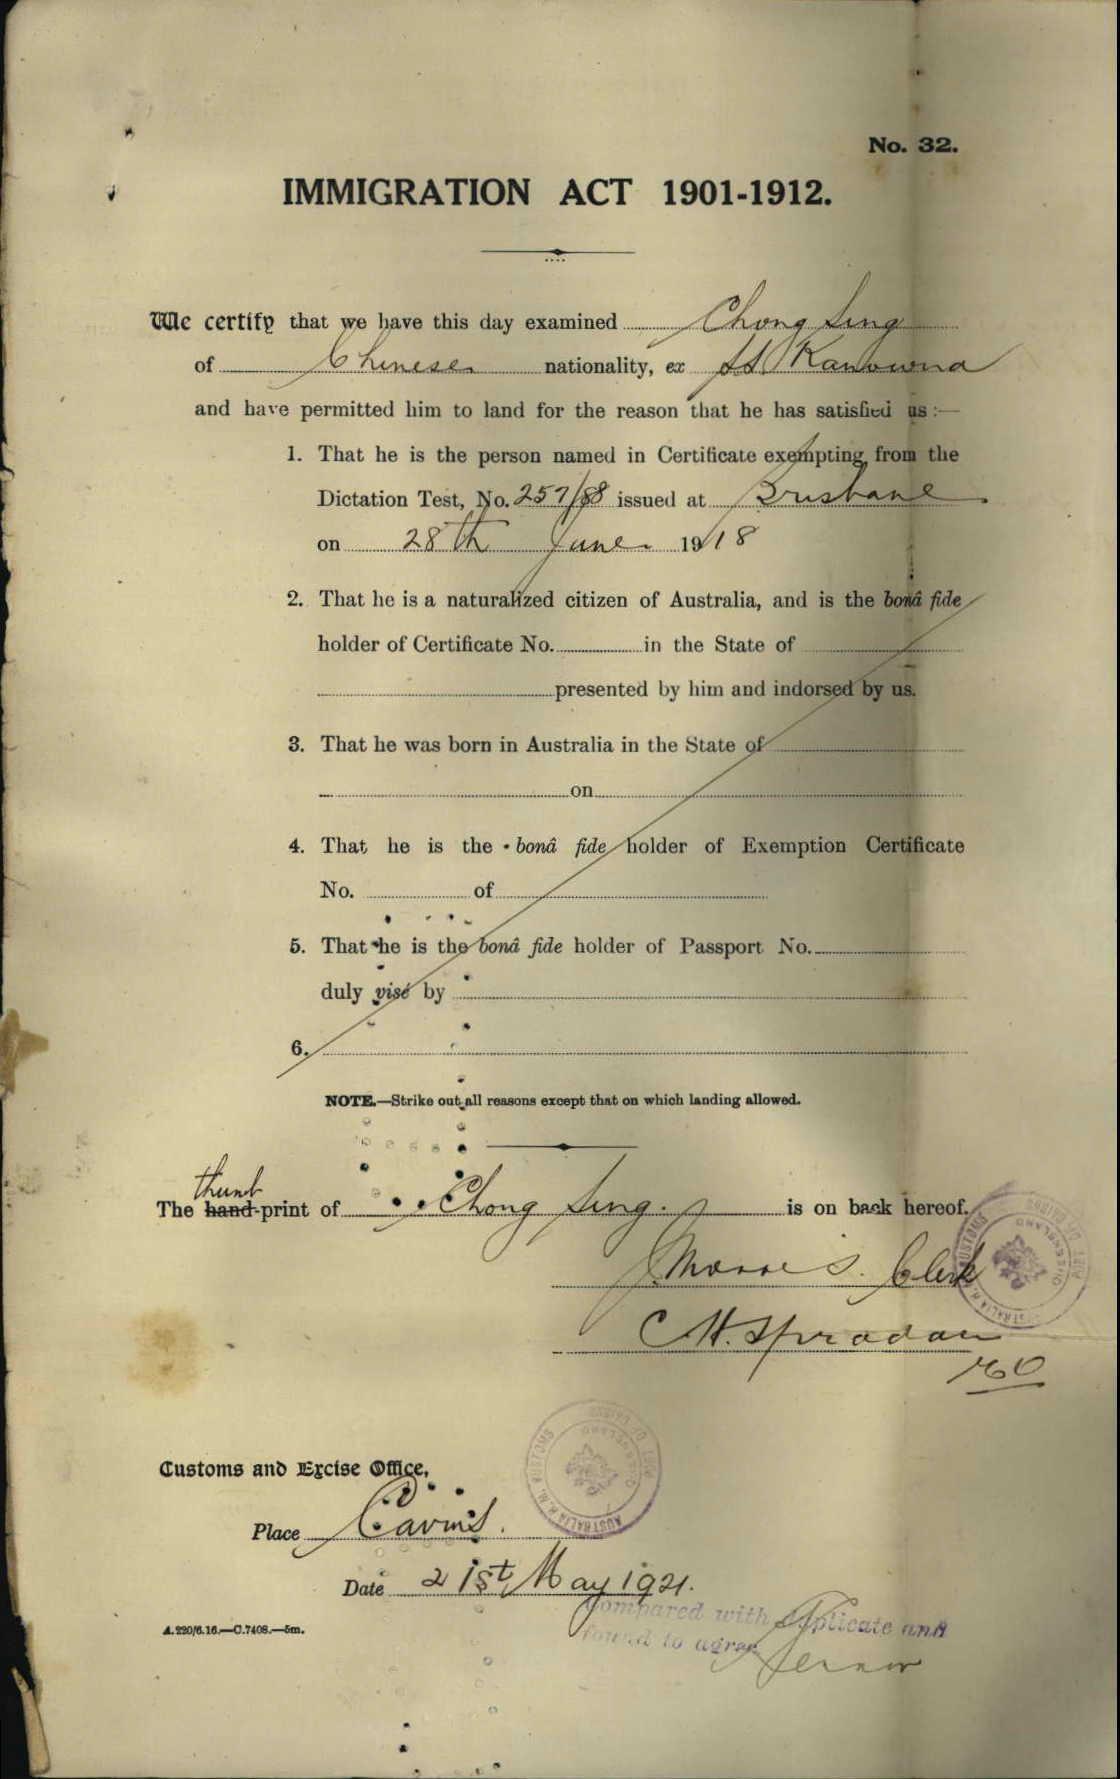 No. 32.
IMMIGRATION ACT 1901-1912.
We certify that we have this day examined Chong Sing
of Chinese nationality, ex SS Kanowna
and have permitted him to land for the reason that he has satisfied us :—
1. That he is the person named in Certificate exempting from the
Dictation Test, No. 257/88 issued at Brisbane
on 28th June 1918
2. That he is a naturalized citizen of Australia, and is the bonâ fide
holder of Certificate No. in the State of
presented by him and indorsed by us.
3. That he was born in Australia in the State of
on
4. That he is the bonâ fide holder of Exemption Certificate
No. of
5. That he is the bonâ fide holder of Passport No.
duly visé by
6.
NOTE.—Strike out all reasons except that on which landing allowed.
thumb
The hand-print of Chong Sing. is on back hereof.
J. Morris. Clerk
C H. Spradan
AUSTRALIA H.M. CUSTOMS PORT OF CAIRNS QUEENSLAND
AUSTRALIA H.M. CUSTOMS PORT OF CAIRNS QUEENSLAND
Customs and Excise Office,
Place Cairns.
Date 21st May 1921.
Compared with duplicate and
found to agree
A.220/6.16.—C.7408.—5m.